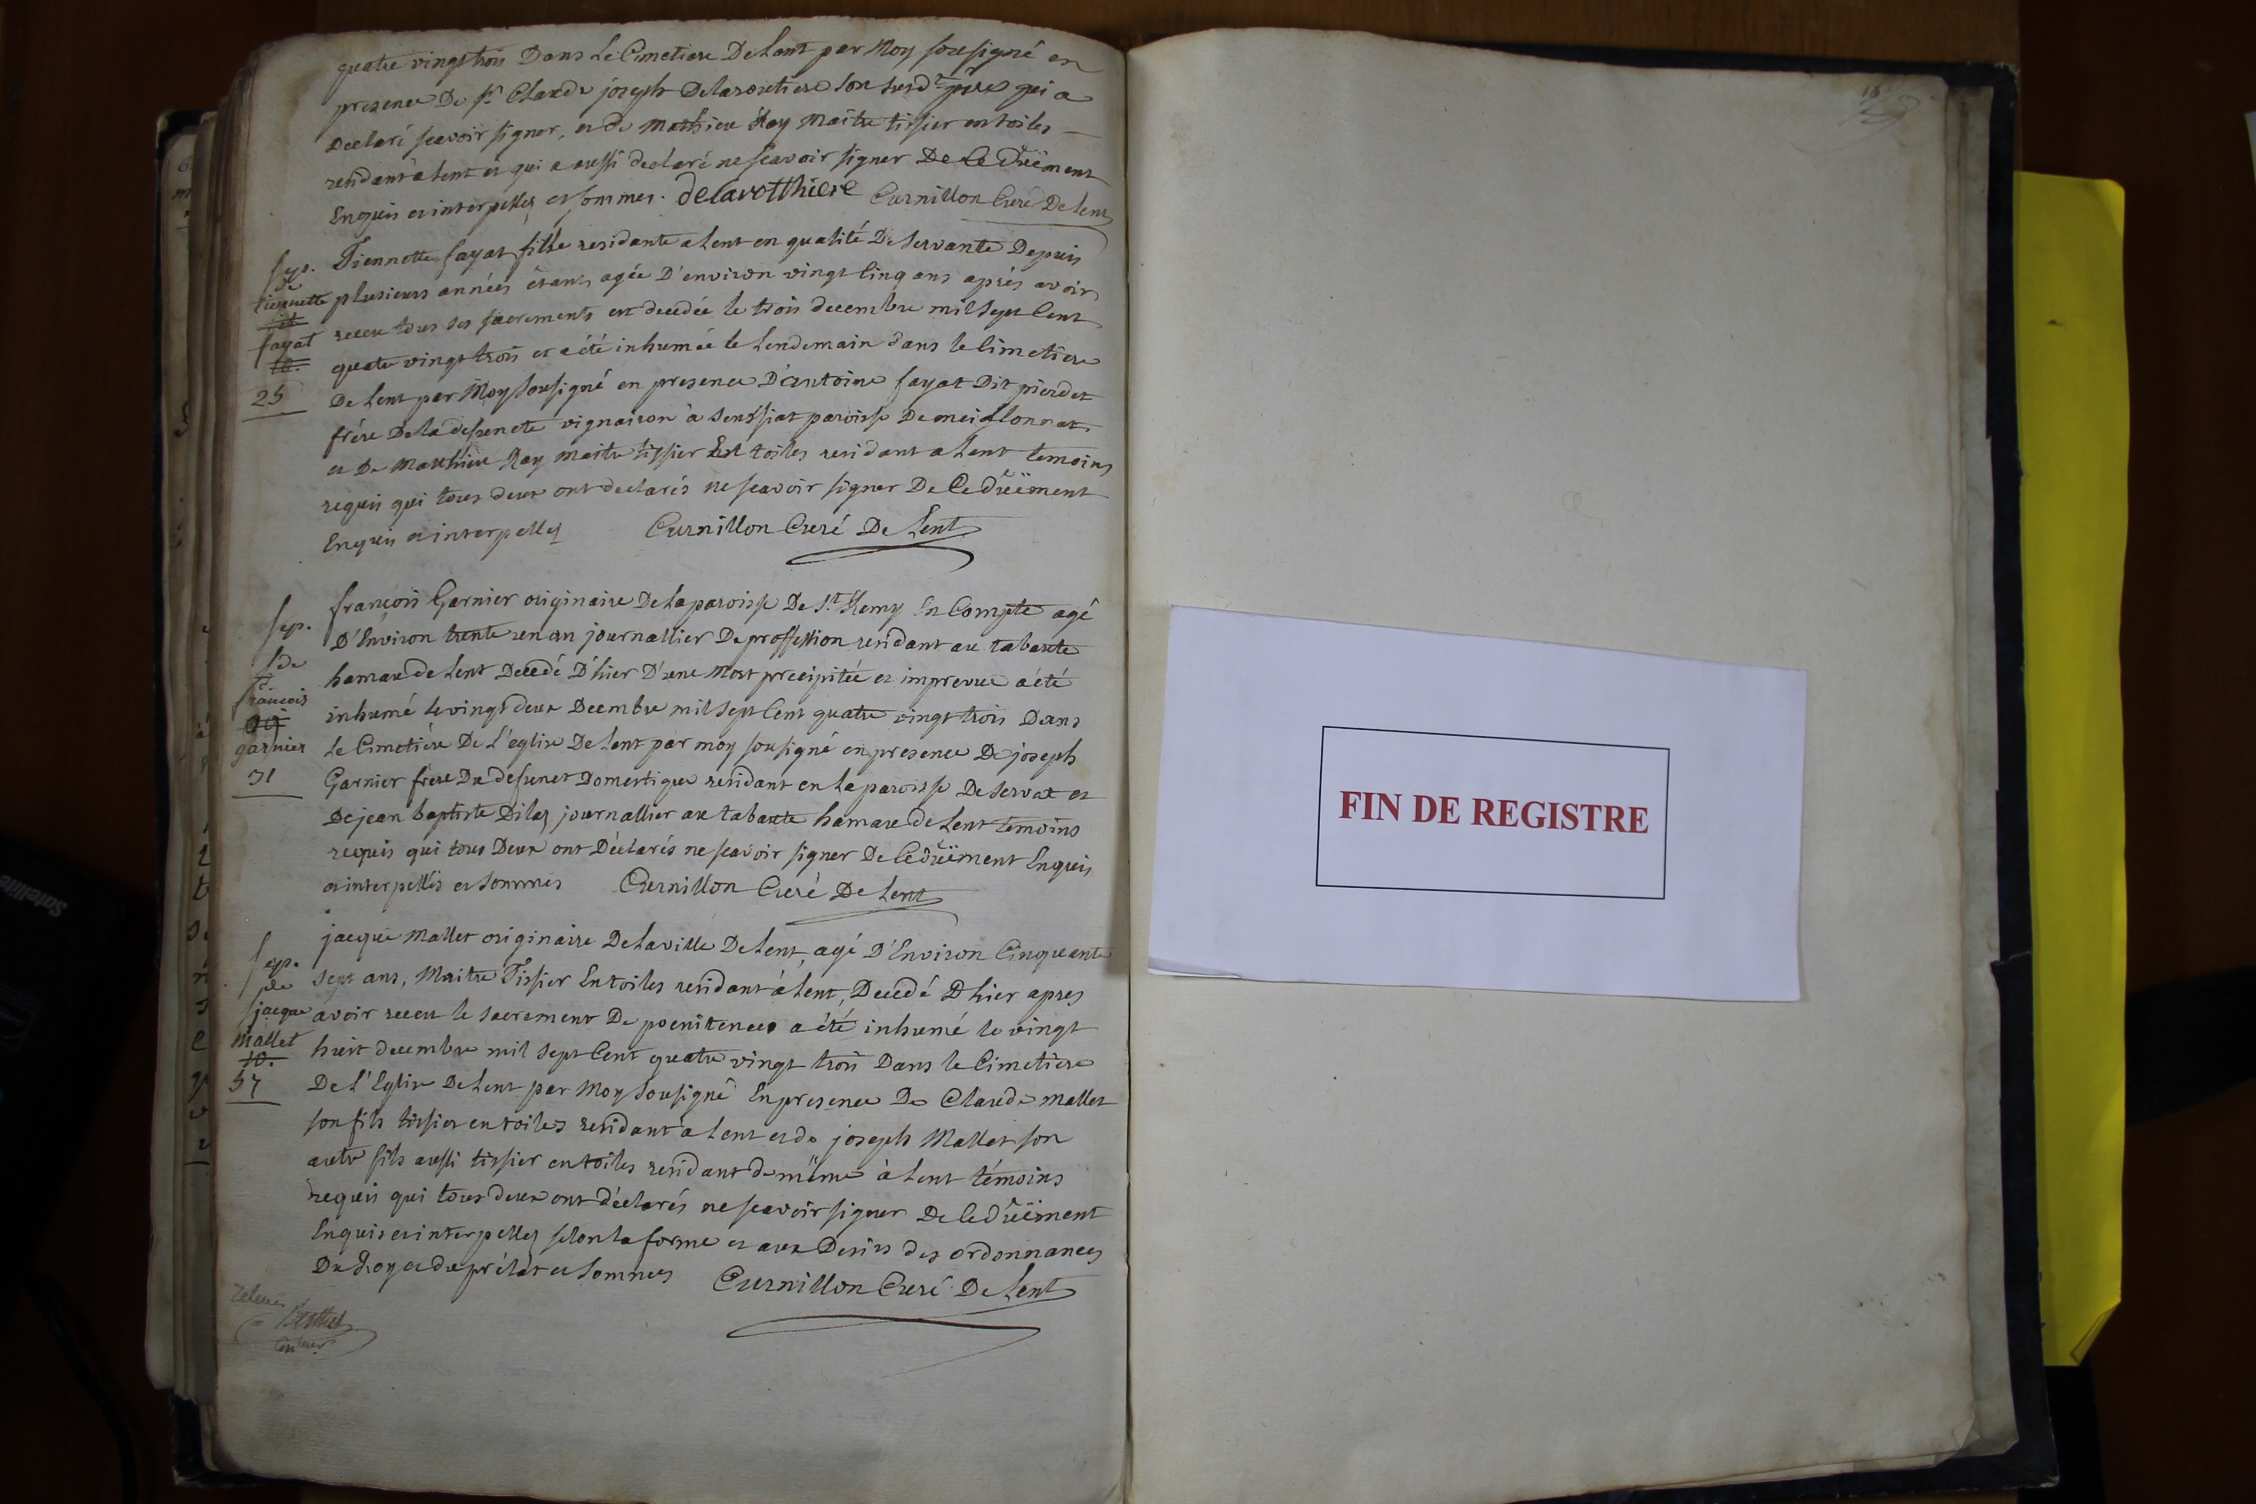 quatre vingt trois Dans Le Cimetiere De Lent par Moy sousigné en
presence De sr. Claude joseph Delarottiere son susdt. père qui a
declaré scavoir signer, et de Mathieu Ray Maitre tissier en toiles
residant a Lent et qui a aussi declaré ne scavoir signer De Ce Düement
Enquis et interpellez et sommes. delarotthiere Curnillon Curé De Lent
Tiennette fayat fille residante a Lent en qualité De servante Depuis
plusieurs années étant agée D'environ vingt Cinq ans aprés avoir
receu tous ses sacrements est decedée le trois decembre mil sept Cent
quatre vingt trois et a été inhumée le Lendemain dans le Cimetiere
De Lent par Moy sousigné en presence D'antoine fayat Dit pierdet
frére De la defuncte vigneron à senissiat paroisse De meillonnat
et De Matthieu Ray Maitre tissier En toiles residant a Lent temoins
requis qui tous deux ont declarés ne scavoir signer De Ce Düement
Enquis et interpellez Curnillon Curé De Lent
sep.
de
tiennette
fayat
25
françois Garnier originaire De la paroisse De St. Remy En Compte agé
D'Environ trente un an journallier De proffession residant au tabaute
hamau de Lent Decedé D'hier D'une Mort precipitée et imprevue a été
inhumé le vingt deux Decembre mil sept Cent quatre vingt trois Dans
Le Cimetiére De L'eglise De Lent par moy sousigné en presence De joseph
Garnier frere Du defunct Domestique residant en la paroisse De servat et
De jean baptiste Dilaz journallier au tabaute hamau de Lent temoins
requis qui tous Deux ont Déclarés ne scavoir signer De Ce düement Enquis
et interpellés et sommés Curnillon Curé De Lent
sep.
de
françois
garnier
31
jacque Mallet originaire De La ville De Lent, agé D'Environ Cinquante
sept ans, Maitre Tissier En toiles residant à Lent, Decedé D'hier apres
avoir receu le sacrement De poenitence a été inhumé le vingt
huit decembre mil sept Cent quatre vingt trois Dans le Cimetiere
De L'Eglise De Lent par Moy sousigné En presence De Claude mallet
son fils tissier en toiles residant a Lent et de joseph Mallet son
autre fils aussi tissier en toiles residant de même à Lent témoins
requis qui tous deux ont déclarés ne scavoir signer De Ce Düement
Enquis et interpellez selon la forme et aux Desirs des ordonnances
Du Roy et du prélat et sommes Curnillon Curé De Lent
sep.
de
jacque
Mallet
57
FIN DE REGISTRE